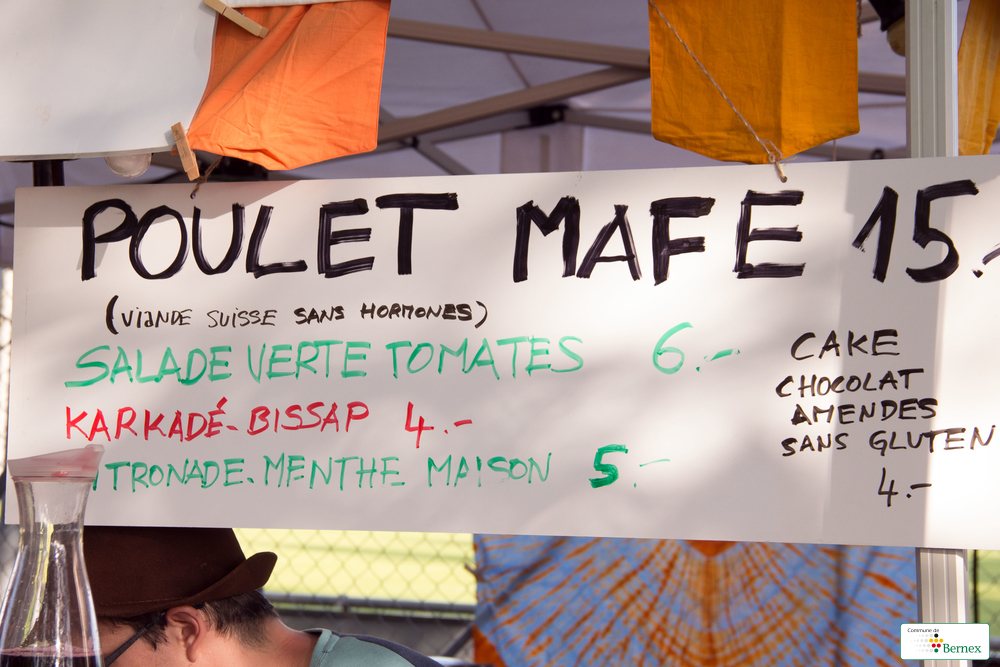 POULET MAFE 15.-
(VIANDE SUISSE SANS HORMONES)
SALADE VERTE TOMATES 6.-
KARKADÉ-BISSAP 4.-
ITRONADE-MENTHE MAISON 5.-
CAKE
CHOCOLAT
AMENDES
SANS GLUTEN
4.-
Commune de
Bernex